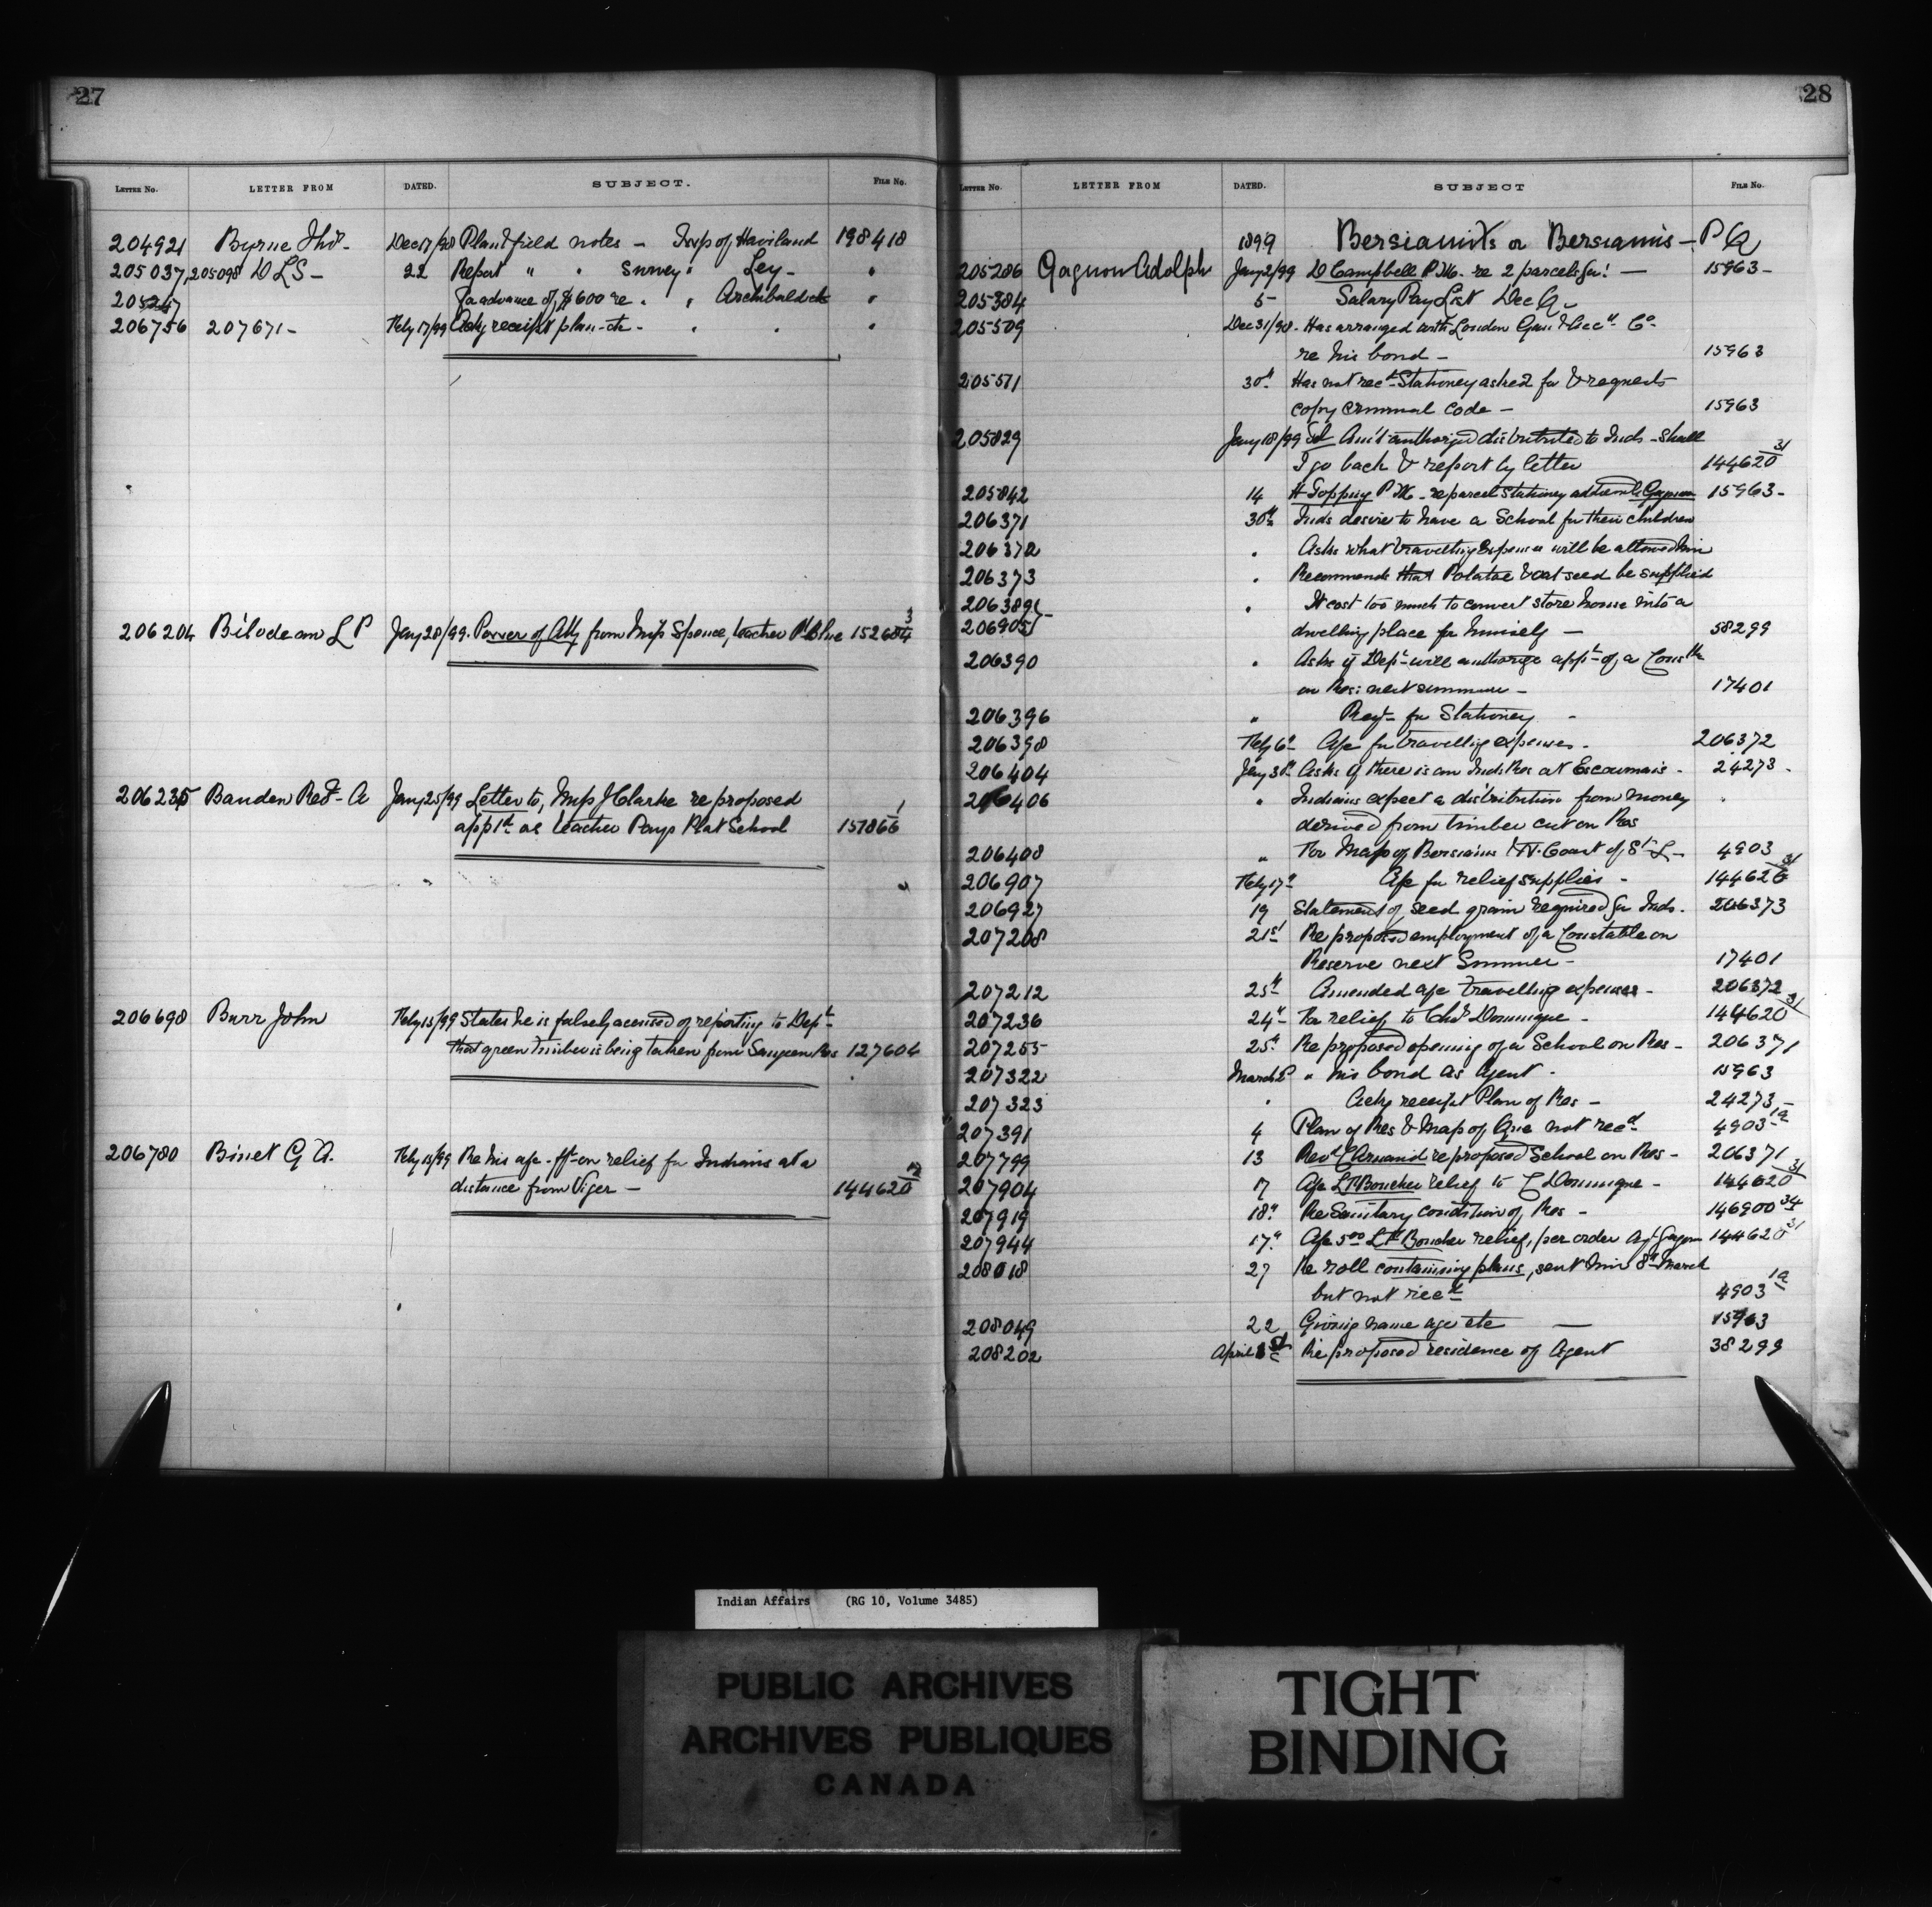 27
LETTER NO. LETTER FROM DATED. SUBJECT. FILE NO.
204921 Byrne Thos- Dec 17/98 Plan & field notes - Twp of Haviland 198418
205037, 205098 D L S - 22 Report " " Survey " Ley - "
205247 For advance of $600 re " " Archibald etc "
206756 207671 - Feby 17/99 Ackg receipt plan etc - " " "
206204 Bilodeau L P Jany 28/99. Power of Atty from Miss Spence, teacher P. Blue 152684 3
206235 Bauden Revd- A Jany 25/99 Letter to, Miss J Clarke re proposed
appt as teacher Pays Plat School 157866 1
206698 Burr John Feby 13/99 States he is falsely accused of reporting to Dept-
that green timber is being taken from Saugeen Res 127604
206780 Binet G A. Feby 13/99 Re his a/c - ff- on relief for Indians at a
distance from Viger - 144620 12
28
LETTER NO. LETTER FROM DATED. SUBJECT FILE NO.
1899 Bersiamits or Bersiamis - P Q
205286 Gagnon Adolph Jany 2/99 D Campbell P.M. re 2 parcels for! - 15963 -
205384 5 - Salary Pay List Dec Q -
205509 Dec 31/98 - Has arranged with London Guar & Acc- Co-
re his bond - 15963
205571 30th Has not recd- Stationery asked for & requests
copy criminal code - 15963
205829 Jany 18/99 Tel Am't authorized distributed to Inds - shall
I go back & report by letter 144620 31
205842 14 H Topping P.M. - re parcel stationery addressed Gagnon 15963 -
206371 30th Inds desire to have a School for their children
206372 " Asks what travelling expenses will be allowed him
206373 " Recommends that Potatoe & oat seed be supplied
206389 " It cost too much to convert store house into a
206905 dwelling place for himself - 38299
206390 " Asks if Dept- will authorize appt- of a Constble
on Res: next summer - 17401
206396 " Reqt- for Stationery -
206398 Feby 6th A/c for travelling expenses - 206372
206404 Jany 30th Asks if there is an Inds Res at Escoumais - 24273 -
206406 " Indians expect a distribution from money "
derived from timber cut on Res
206408 " For Map of Bersiamis & N. Coast of St L - 4903
206907 Feby 17th A/c for relief supplies - 144620 31
206927 19 Statement of seed grain required for Inds - 206373
207208 21st Re proposed employment of a Constable on
Reserve next Summer - 17401
207212 25th Amended a/c travelling expenses - 206372
207236 24th For relief to Chas Dominique - 144620 31
207255 25th Re proposed opening of a School on Res - 206371
207322 March 2 " his bond as Agent - 15963
207323 " Ackg receipt Plan of Res - 24273 -
207391 4 Plan of Res & Map of Que not recd 4903 1a
207799 13 Revd C Arnaud re proposed School on Res - 206371
207904 17 A/c L P Boucher relief to C Dominique - 144620 31
207919 18th Re Sanitary condition of Res - 146900 34
207944 17th A/c 5.00 L P Boucher relief, per order Agt Gagnon 144620 31
208018 27 Re roll containing plans, sent him 8th March
but not recd 4903 1a
208049 22 Giving name age etc - 15963
208202 April 1st Re proposed residence of Agent 38299
Indian Affairs (RG 10, Volume 3485)
PUBLIC ARCHIVES
ARCHIVES PUBLIQUES
CANADA
TIGHT
BINDING